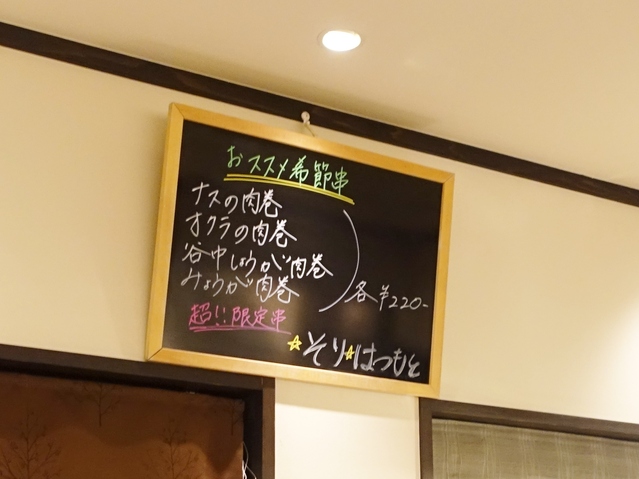 おススメ希節串
ナスの肉巻
オクラの肉巻
谷中しょうが肉巻
みょうが肉巻
各¥220-
超!!限定串
☆そり☆はつもと